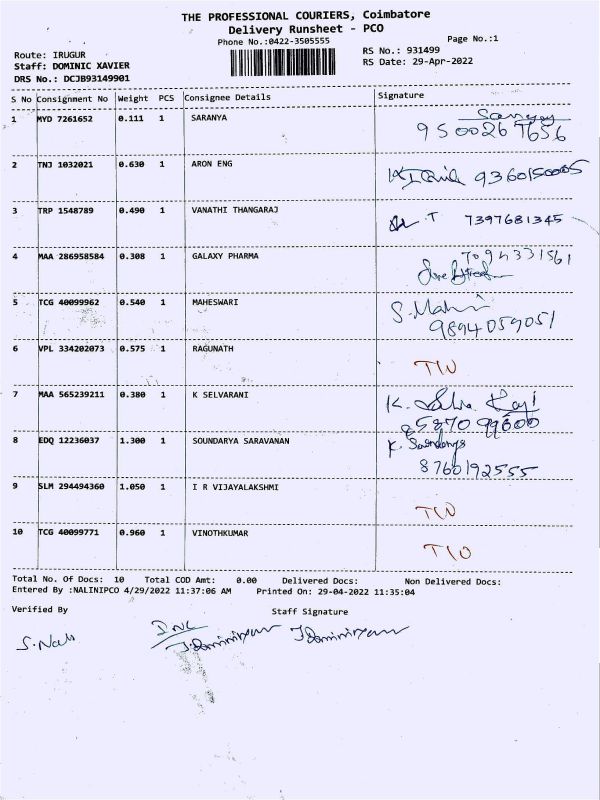 THE PROFESSIONAL COURIERS, Coimbatore
Delivery Runsheet - PCO
Phone No.:0422-3505555 Page No.:1
Route: IRUGUR RS No.: 931499
Staff: DOMINIC XAVIER RS Date: 29-Apr-2022
DRS No.: DCJB93149901
S No Consignment No Weight PCS Consignee Details Signature
1 MYD 7261652 0.111 1 SARANYA
9500267656
2 TNJ 1032021 0.630 1 ARON ENG 9360150005
3 TRP 1548789 0.490 1 VANATHI THANGARAJ T 7397681345
4 MAA 286958584 0.308 1 GALAXY PHARMA 7094331561
5 TCG 40099962 0.540 1 MAHESWARI S. Mahi
9894059051
6 VPL 334202073 0.575 1 RAGUNATH
7 MAA 565239211 0.380 1 K SELVARANI K.
8587099600
8 EDQ 12236037 1.300 1 SOUNDARYA SARAVANAN K.
8760192555
9 SLM 294494360 1.050 1 I R VIJAYALAKSHMI
10 TCG 40099771 0.960 1 VINOTHKUMAR
Total No. Of Docs: 10 Total COD Amt: 0.00 Delivered Docs: Non Delivered Docs:
Entered By :NALINIPCO 4/29/2022 11:37:06 AM Printed On: 29-04-2022 11:35:04
Verified By Staff Signature